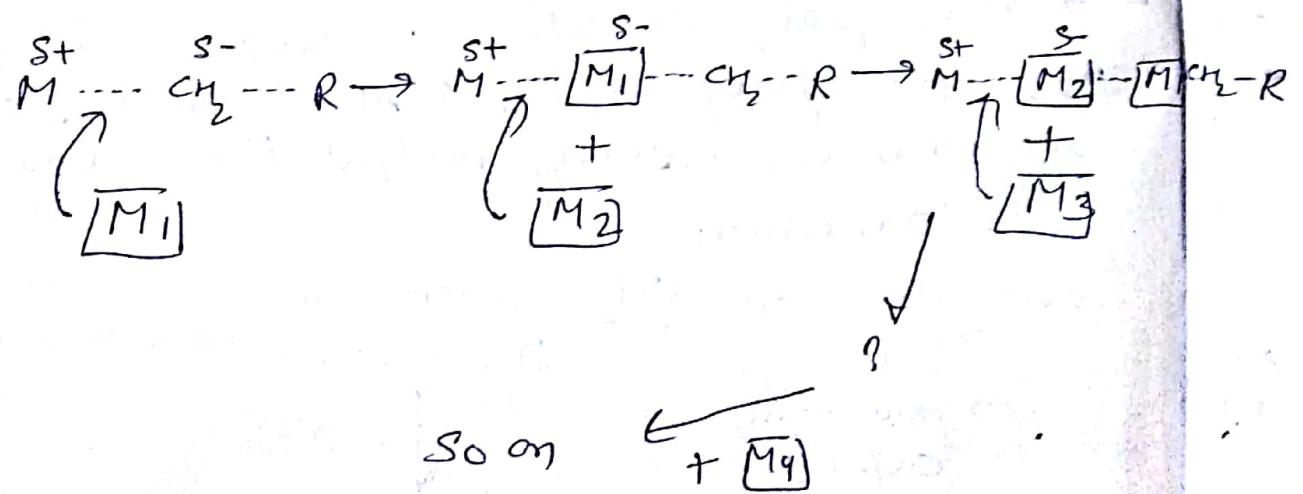 S+ S- S+ S- S+ S-
M ---- CH2 --- R → M ---- M1 --- CH2 -- R → M --- M2 -- M CH2 - R
+ +
M1 M2 M3
?
So on + M4